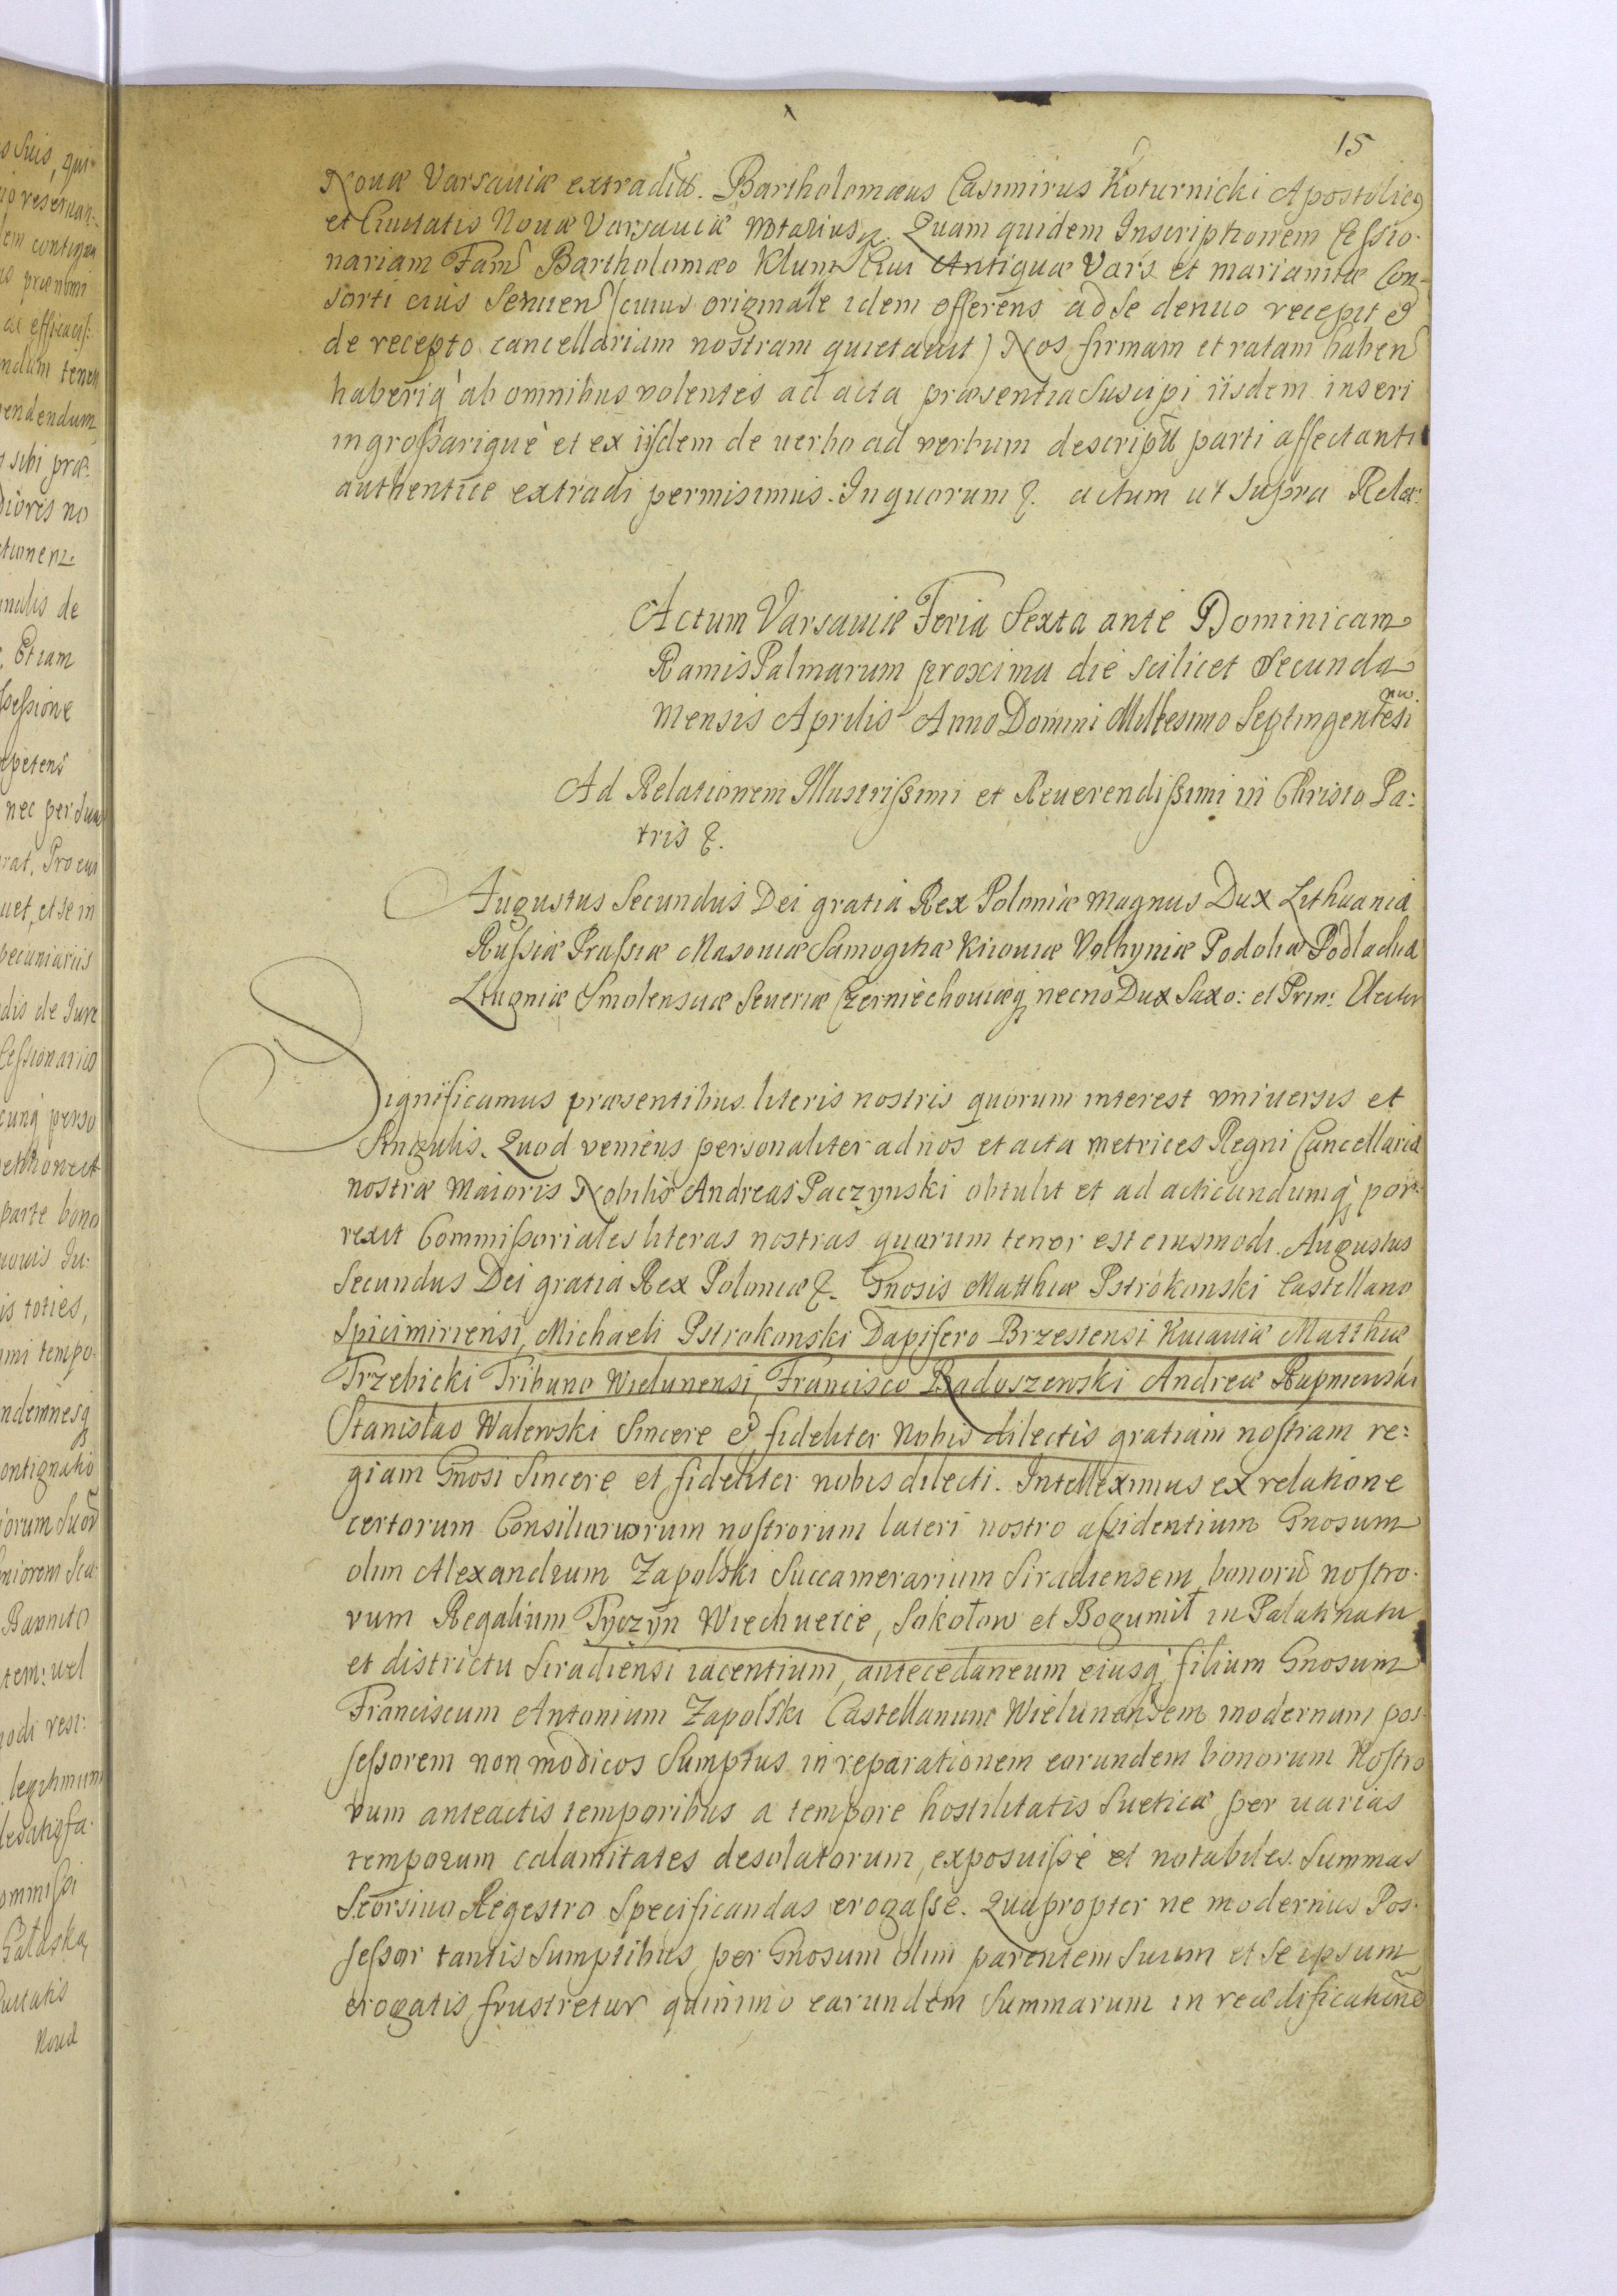 15
Nouæ Varsauiæ extraditt. Bartholomæus Casimirus Koturnicki Apostolicus
et Ciuitatis Nouæ Varsauiæ Notarius. Quam quidem Inscriptionem Cessio-
nariam Fam Bartholomæo Klunt Ciui Antiquæ Vars et mariannæ Con-
sorti eius Seruien (cuius originale idem offerens ad se denuo recepit et
de recepto cancellariam nostram quietauit) Nos firmam et ratam haben
haberiq ab omnibus volentes ad acta præsentia Suscipi iisdem inseri
ingrossarique et ex iisdem de uerbo ad verbum descriptu parti affectanti
authentice extradi permisimus. In quorum &. actum ut supra Rela:
Actum Varsauiæ Feria Sexta ante Dominicam
Ramis Palmarum proxima die scilicet Secunda
Mensis Aprilis Anno Domini Millesimo Septingentesi
mo
Ad Relationem Illustrissimi et Reuerendissimi in Christo Pa:
tris &.
Augustus Secundus Dei gratia Rex Poloniæ Magnus Dux Lithuaniæ
Russiæ Prussiæ Masouiæ Samogitiæ Kiiouiæ Volhyniæ Podoliæ Podlachiæ
Liuoniæ Smolensciæ Seueriæ Czerniechouiæq necno Dux Saxo: et Prin: Elector
Significamus præsentibus literis nostris quorum interest vniuersis et
Singulis. Quod veniens personaliter ad nos et acta metrices Regni Cancellariæ
nostræ Maioris Nobilis Andreas Paczynski obtulit et ad acticandumq por-
rexit Commissoriales literas nostras quarum tenor est eiusmodi. Augustus
Secundus Dei gratia Rex Poloniæ &. Gnosis Matthiæ Pstrokonski Castellano
Spicimiriensi, Michaeli Pstrokonski Dapifero Brzestensi Kuiauiæ Matthiæ
Trzebicki Tribuno Wielunensi, Francisco Radoszewski Andreæ Rupniewski
Stanislao Walewski Sincere et fideliter Nobis dilectis gratiam nostram re:
giam Gnosi Sincere et fideliter nobis dilecti. Intelleximus ex relatione
certorum Consiliariorum nostrorum lateri nostro assidentium Gnosum
olim Alexandrum Zapolski Succamerarium Siradiensem bonoru nostro-
rum Regalium Tyczyn Wiechucice, Sokołow et Bogumił in Palatinatu
et districtu Siradiensi iacentium, antecedaneum eiusq filium Gnosum
Franciscum Antonium Zapolski Castellanum Wielunensem modernum pos-
sessorem non modicos Sumptus in reparationem earundem bonorum Nostro
rum anteactis temporibus a tempore hostilitatis Sueticæ per uarias
temporum calamitates desolatorum, exposuisse et notabiles Summas
Seorsiuo Regestro Specificandas erogasse. Quapropter ne modernus Pos-
sessor tantis Sumptibus per Gnosum olim parentem Suum et Se ipsum
erogatis frustretur quinimo earundem Summarum in reædificatione